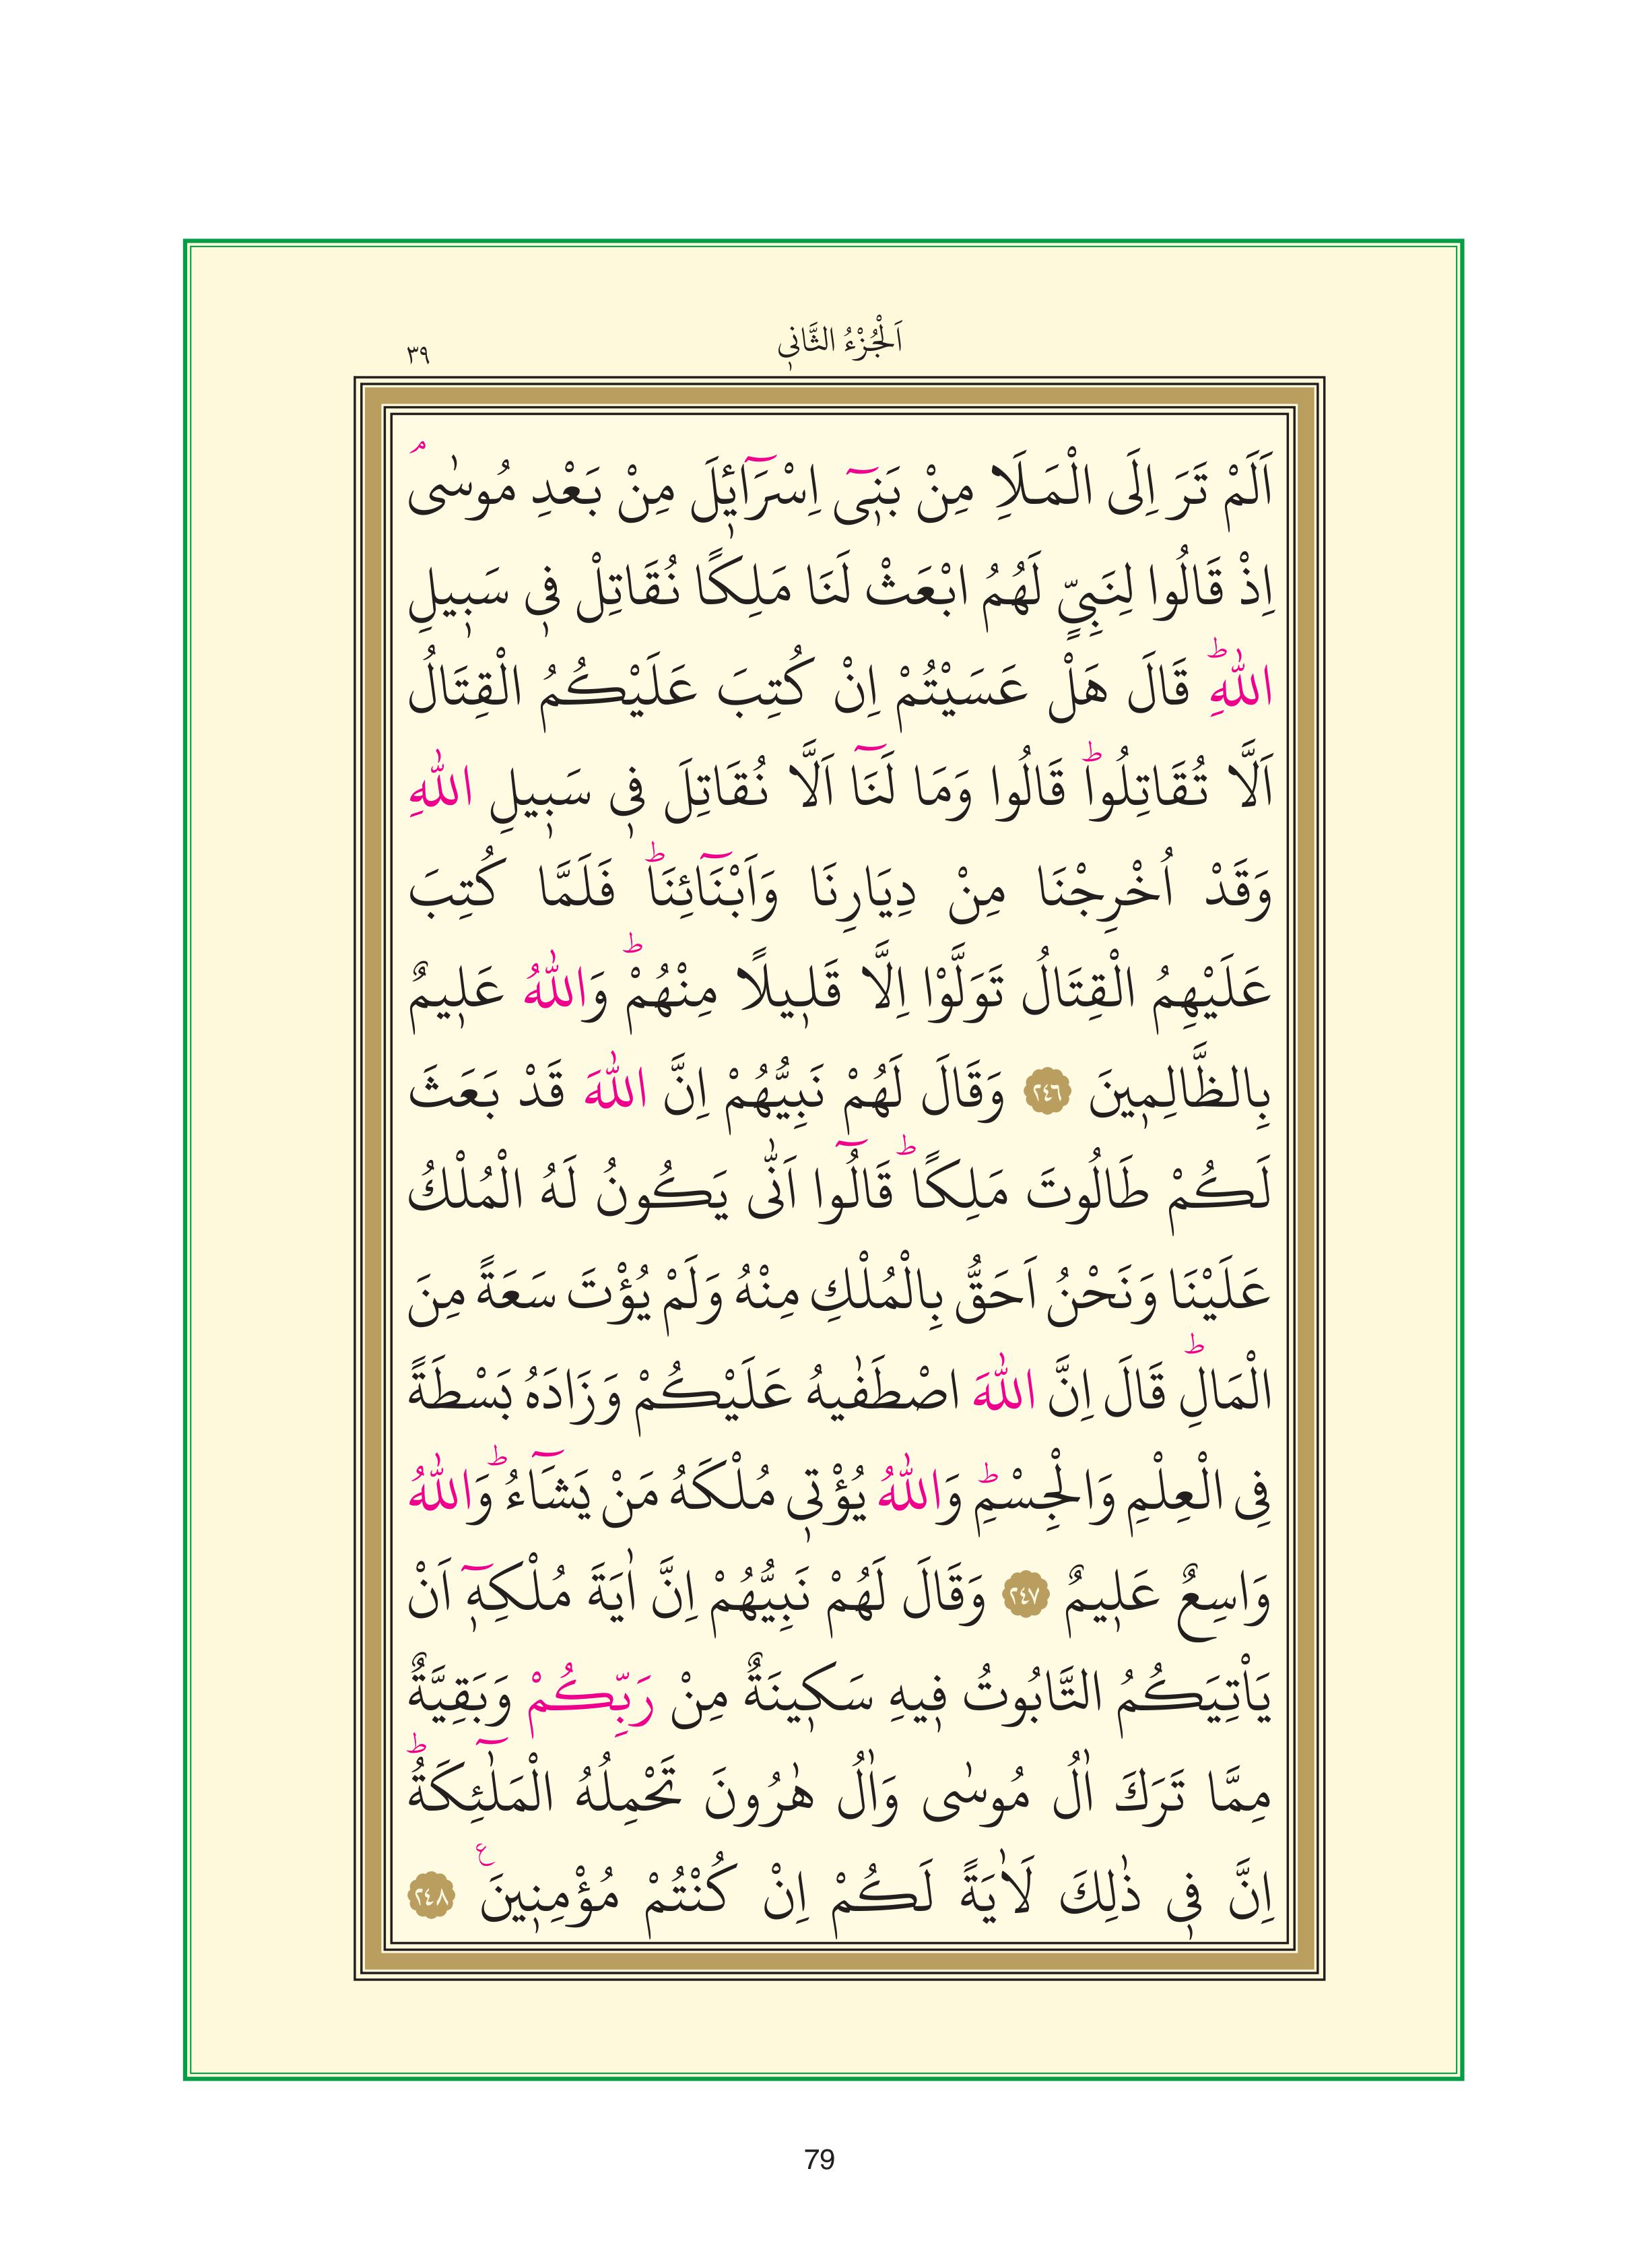 اَلْجُزْءُ الثَّانٖي
٣٩
اَلَمْ تَرَ اِلَى الْمَلَاِ مِنْ بَنٖٓى اِسْرَٓائٖلَ مِنْ بَعْدِ مُوسٰىۘ
اِذْ قَالُوا لِنَبِيٍّ لَهُمُ ابْعَثْ لَنَا مَلِكًا نُقَاتِلْ فٖى سَبٖيلِ
اللّٰهِؕ قَالَ هَلْ عَسَيْتُمْ اِنْ كُتِبَ عَلَيْكُمُ الْقِتَالُ
اَلَّا تُقَاتِلُواؕ قَالُوا وَمَا لَنَٓا اَلَّا نُقَاتِلَ فٖى سَبٖيلِ اللّٰهِ
وَقَدْ اُخْرِجْنَا مِنْ دِيَارِنَا وَاَبْنَٓائِنَاؕ فَلَمَّا كُتِبَ
عَلَيْهِمُ الْقِتَالُ تَوَلَّوْا اِلَّا قَلٖيلًا مِنْهُمْؕ وَاللّٰهُ عَلٖيمٌ
بِالظَّالِمٖينَ ﴿٢٤٦﴾ وَقَالَ لَهُمْ نَبِيُّهُمْ اِنَّ اللّٰهَ قَدْ بَعَثَ
لَكُمْ طَالُوتَ مَلِكًاؕ قَالُٓوا اَنّٰى يَكُونُ لَهُ الْمُلْكُ
عَلَيْنَا وَنَحْنُ اَحَقُّ بِالْمُلْكِ مِنْهُ وَلَمْ يُؤْتَ سَعَةً مِنَ
الْمَالِؕ قَالَ اِنَّ اللّٰهَ اصْطَفٰيهُ عَلَيْكُمْ وَزَادَهُ بَسْطَةً
فِى الْعِلْمِ وَالْجِسْمِؕ وَاللّٰهُ يُؤْتٖى مُلْكَهُ مَنْ يَشَٓاءُؕ وَاللّٰهُ
وَاسِعٌ عَلٖيمٌ ﴿٢٤٧﴾ وَقَالَ لَهُمْ نَبِيُّهُمْ اِنَّ اٰيَةَ مُلْكِهٖٓ اَنْ
يَاْتِيَكُمُ التَّابُوتُ فٖيهِ سَكٖينَةٌ مِنْ رَبِّكُمْ وَبَقِيَّةٌ
مِمَّا تَرَكَ اٰلُ مُوسٰى وَاٰلُ هٰرُونَ تَحْمِلُهُ الْمَلٰٓئِكَةُؕ
اِنَّ فٖى ذٰلِكَ لَاٰيَةً لَكُمْ اِنْ كُنْتُمْ مُؤْمِنٖينَ ع ﴿٢٤٨﴾
79